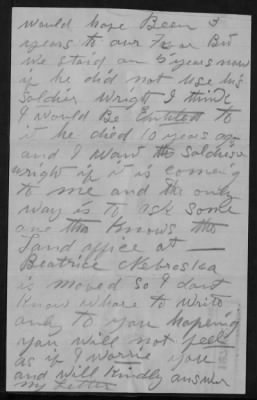 would hope Been 3
years to our Four But
we staid on 5 years now
if he did not use his
Soldier wright I think
I would Be Entitled to
it he died 10 years ago
and I Want the Soldiers
wright if it is comeing
to me and the only
way is to ask some
one tha Knows the
Land office at —
Beatrice Nebraska
is moved So I dont
Know whare to write
only to you hopeing
you will not feel
as if I worrie you
and will Kindly answer
my Letter